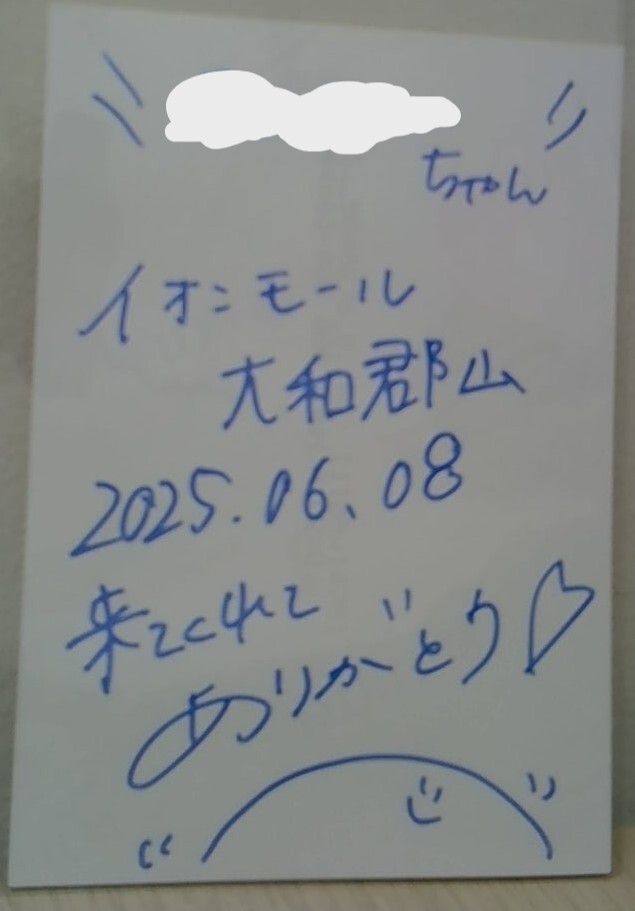 ちゃん
イオンモール
大和郡山
2025.06.08
来てくれて
ありがとう♡